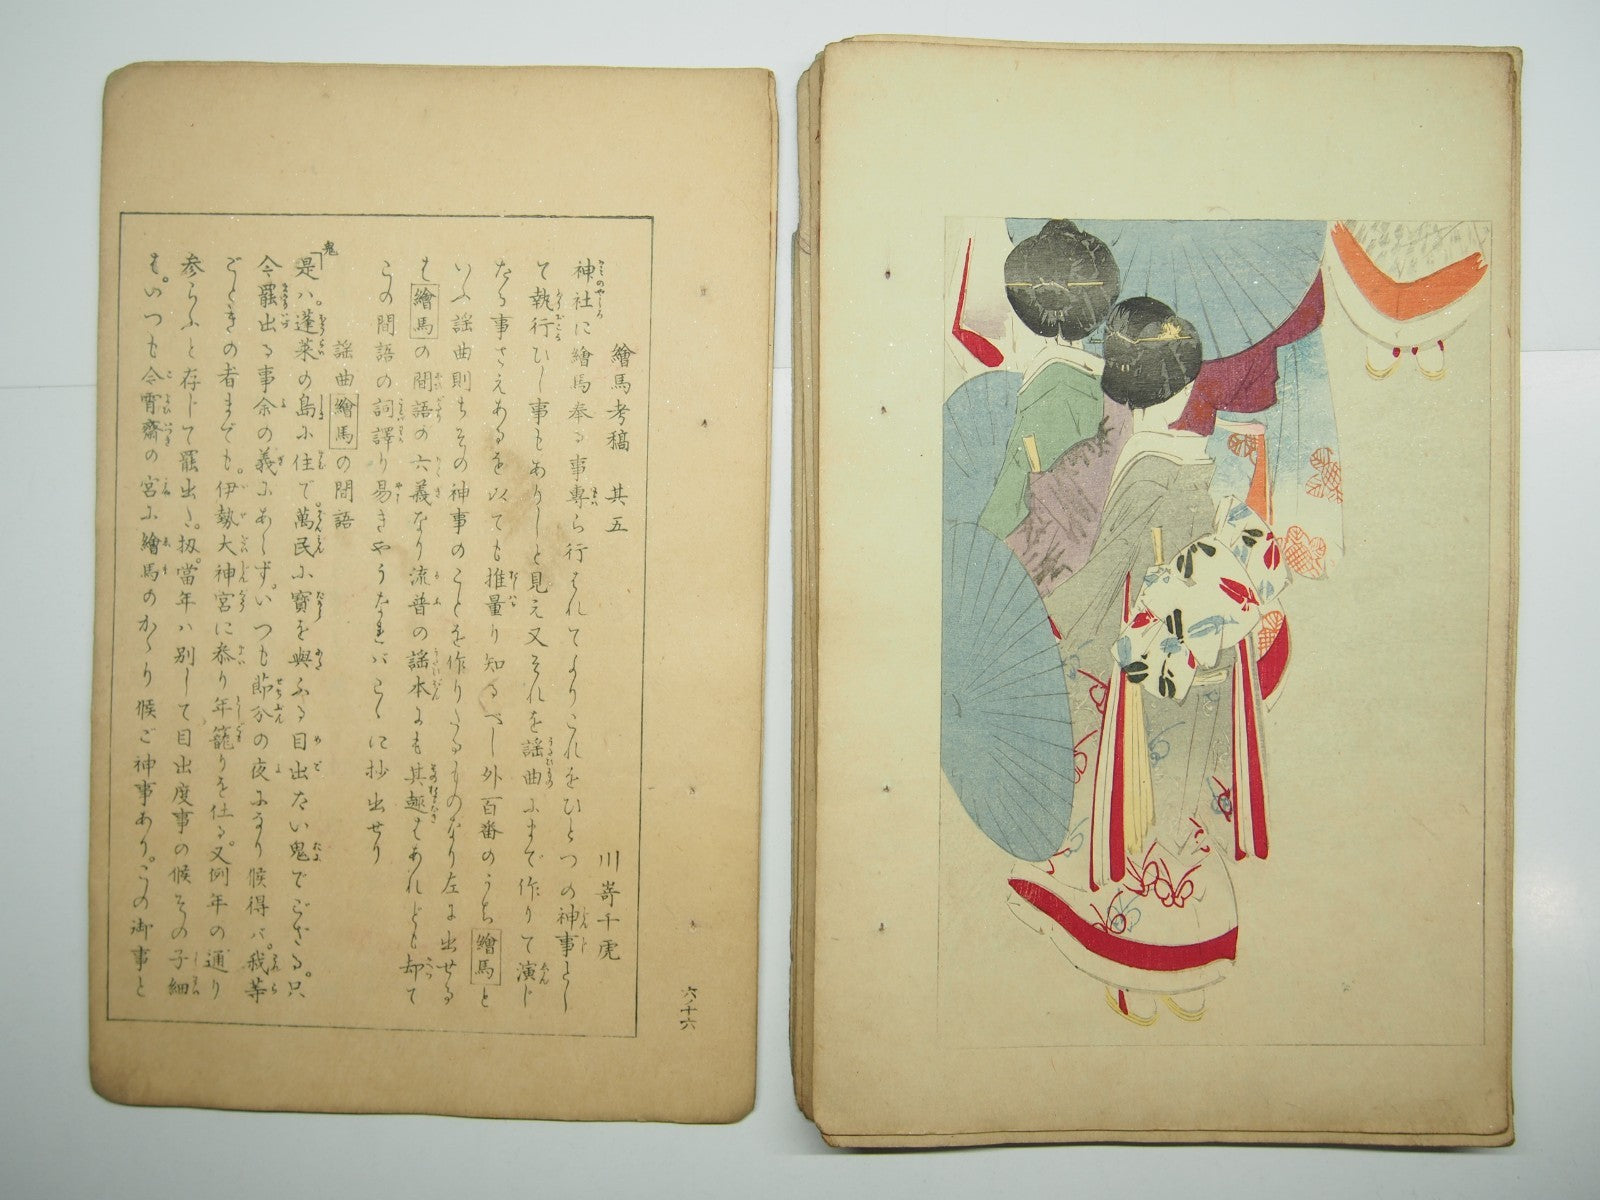 繪馬考稿 其五
川嵜千虎
神社に繪馬奉る事専ら行はれてよりこれをひとつの神事とし
て執行ひし事もありしと見え又それを謡曲ふまで作りて演じ
たる事さえあるを以ても推量り知るべし外百番のうち繪馬と
いふ謡曲則ちその神事のことを作りたるものなり左に出せる
は繪馬の間語の六義なり流普の謡本にも其趣はあれども却て
この間語の詞譯り易きやうなれバこゝに抄出せり
謡曲繪馬の間語
鬼
是ハ蓬莱の島ふ住で萬民ふ寶を與ふる目出たい鬼でござる。只
今罷出る事余の義ふあらず。いつも節分の夜ふなり候得バ。我等
ごときの者までも。伊勢大神宮に參り年籠りを仕る。又例年の通り
参らふと存じて罷出た。扨當年ハ別して目出度事の候その子細
は。いつも今宵齋の宮ふ繪馬のかゝり候ご神事あり。この御事と
六ノ十六